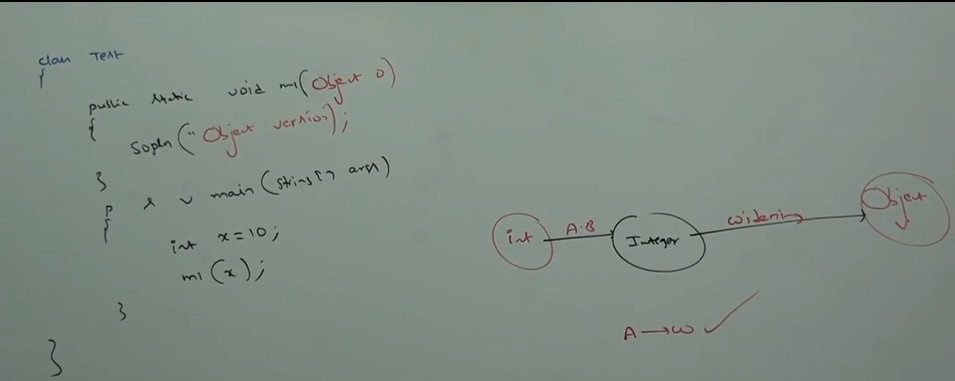 class Test
{
public static void m1(Object o)
{
Sopln("Object version");
}
p s v main(String[] args)
{
int x=10;
m1(x);
}
}
int A.B Integer widening Object
A→W